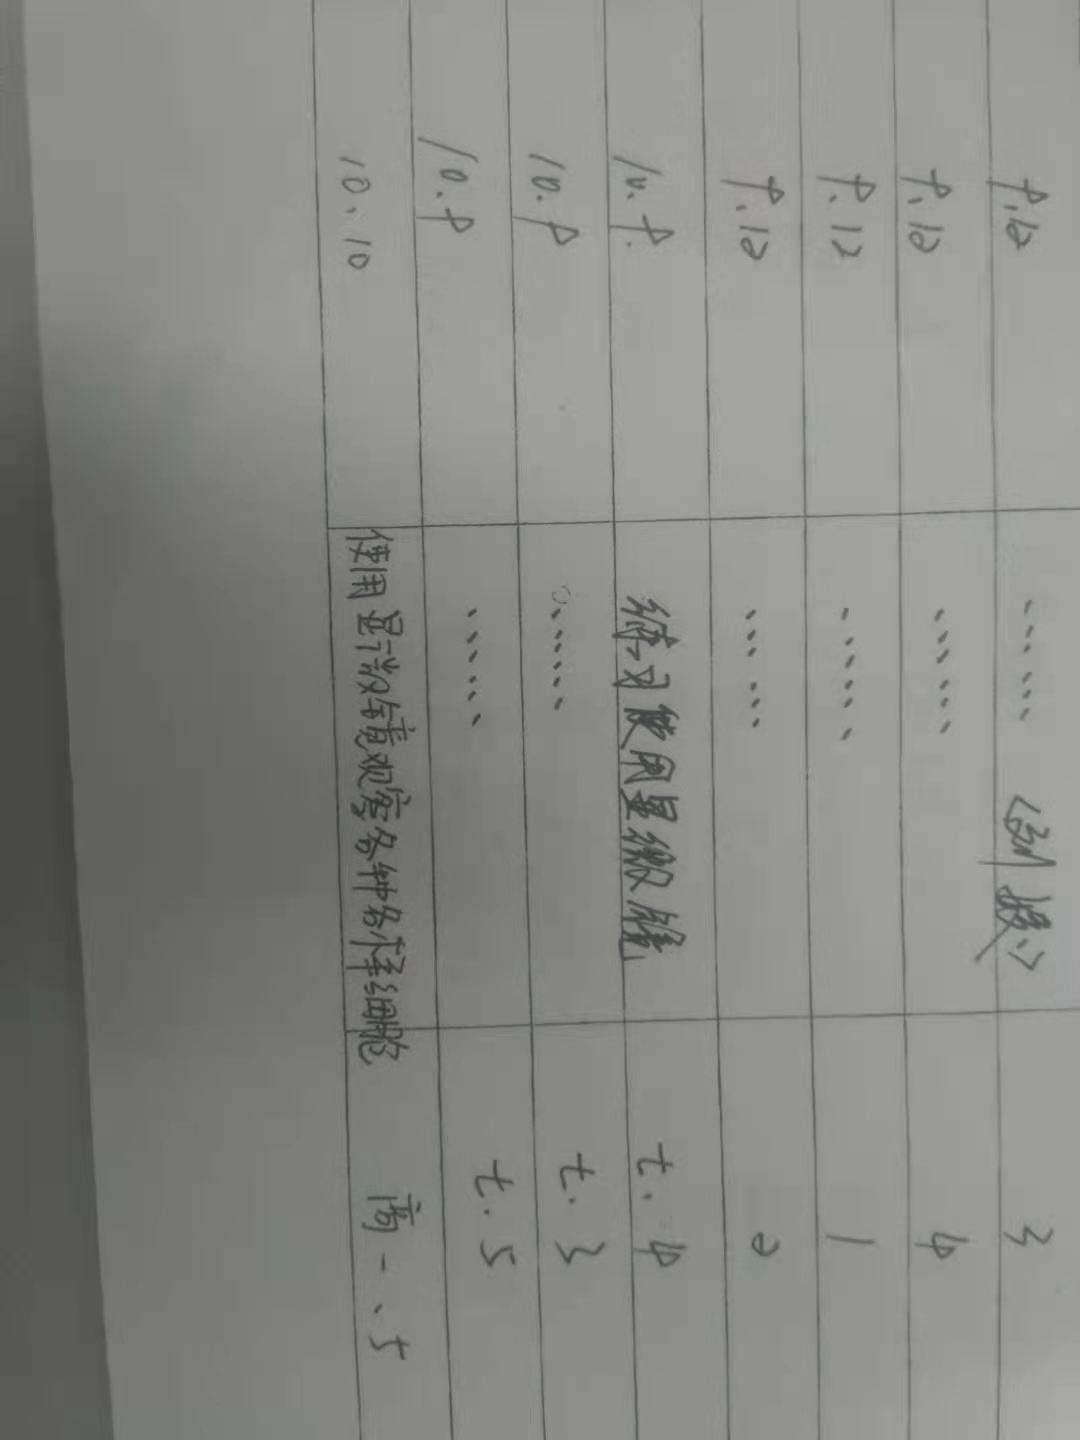 9.12 、、、、、、 3
9.12 、、、、、 4
9.12 、、、、、 1
9.12 、、、、、 2
10.9. 练习使用显微镜 七.4
10.9 、、、、、 七.3
10.9 、、、、、 七.5
10.10 使用显微镜观察各种各样细胞 高一、5